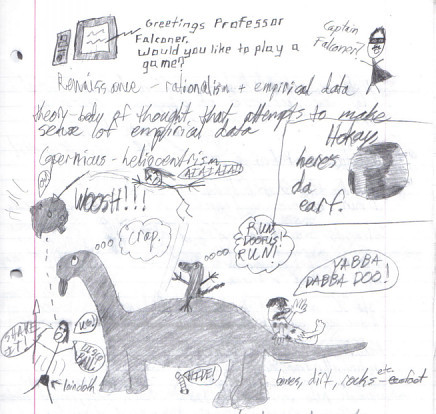 Greetings Professor
Falconer.
Would you like to play a
game?
Captain
Falconer?
Renaissance - rationalism + empirical data
theory - body of thought, that attempts to make
sense of empirical data
Hokay
heres
da
earf.
Copernicus - heliocentrism
AIAIAIAI!
WOOSH!!!
Crap.
RUN!
DOOFUS!
RUN!
YABBA
DABBA DOO!
SHAKE
IT!
loincloth
HIDE!
bones, dirt, rocks - etc.